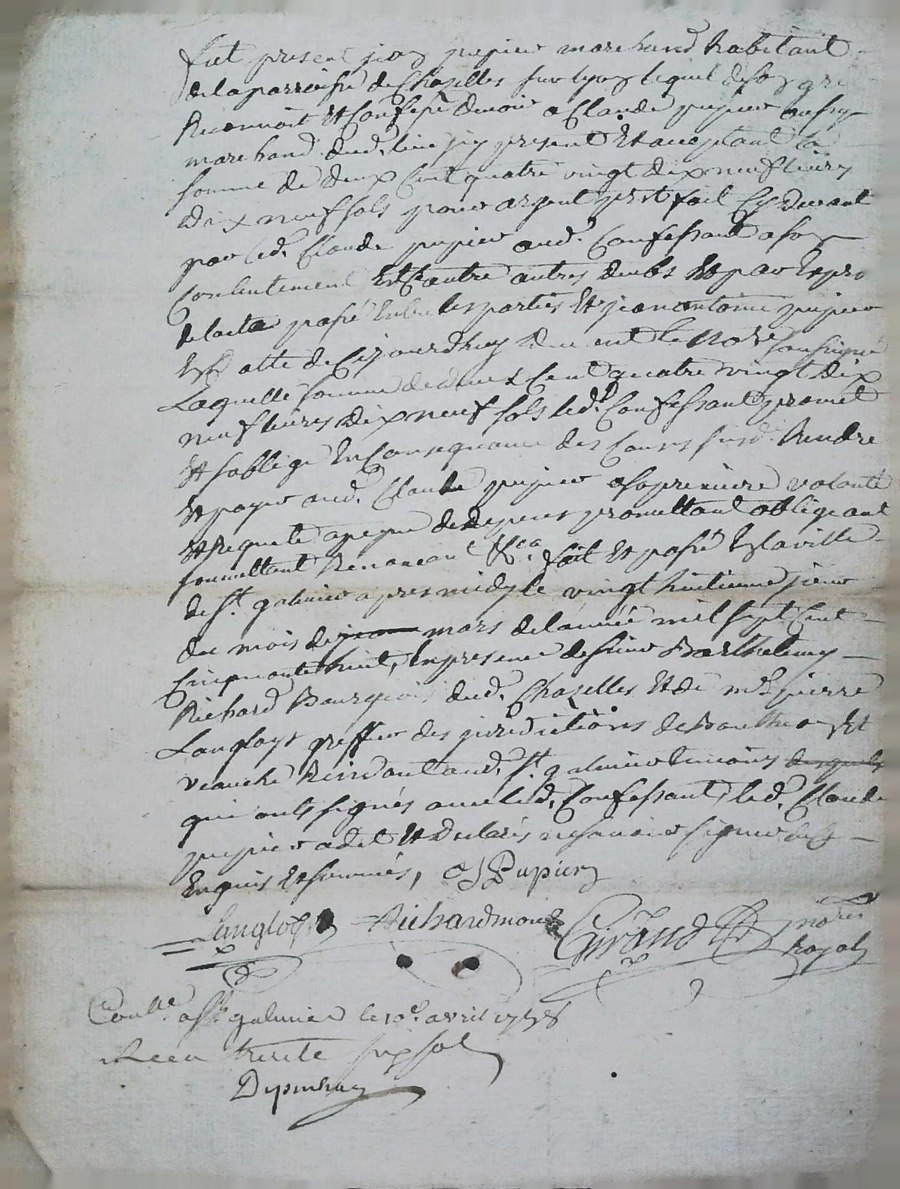 fut present jean pupier marchand habitant
de la parroisse de Chazelles sur lyon lequel de son gre
Reconnoit Et Confesse devoir a Claude pupier aussy
marchand dud. lieu jcy present Et aceptant la
somme de deux Cent quatre vingt dix neuf livres
dix neuf sols pour argent prest fait Cy devant
par led. Claude pupier aud. Confessant a son
Contentement Et Contre autres deubs Et par Expres
de lacte passé Entre les parties Et jean antoine pupier
Et atte de Cejourdhuy devant le No.re soussigné
Laquelle somme de deux Cent quatre vingt dix
neuf livres dix neuf sols led. Confessant promet
Et soblige En Consequance des Cours susd. Rendre
Et payer aud. Claude pupier a sa premiere volonté
Et Requete a peyne de depens promettant obligeant
soumettant Renoncant &ca. fait Et passé En la ville
de St. galmier apres midy le vingt huitieme jour
du mois de mars de lannée mil sept Cent
Cinquante huit, En presence de sieur Barthelemy
Richard Bourgeois dud. Chazelles Et de me. pierre
Langloys greffier des jurisdictions de Bouthеon Et
veauche Residant aud. St. galmier temoins
qui ont signés avec led. Confessant, led. Claude
pupier a dit Et declaré ne savoir signer de ce
Enquis Et sommés, Pupier
Langlois Richard Giraud no.re
Royal
Conllé. a St. galmier le 10e. avril 1758
Recu trente six sols